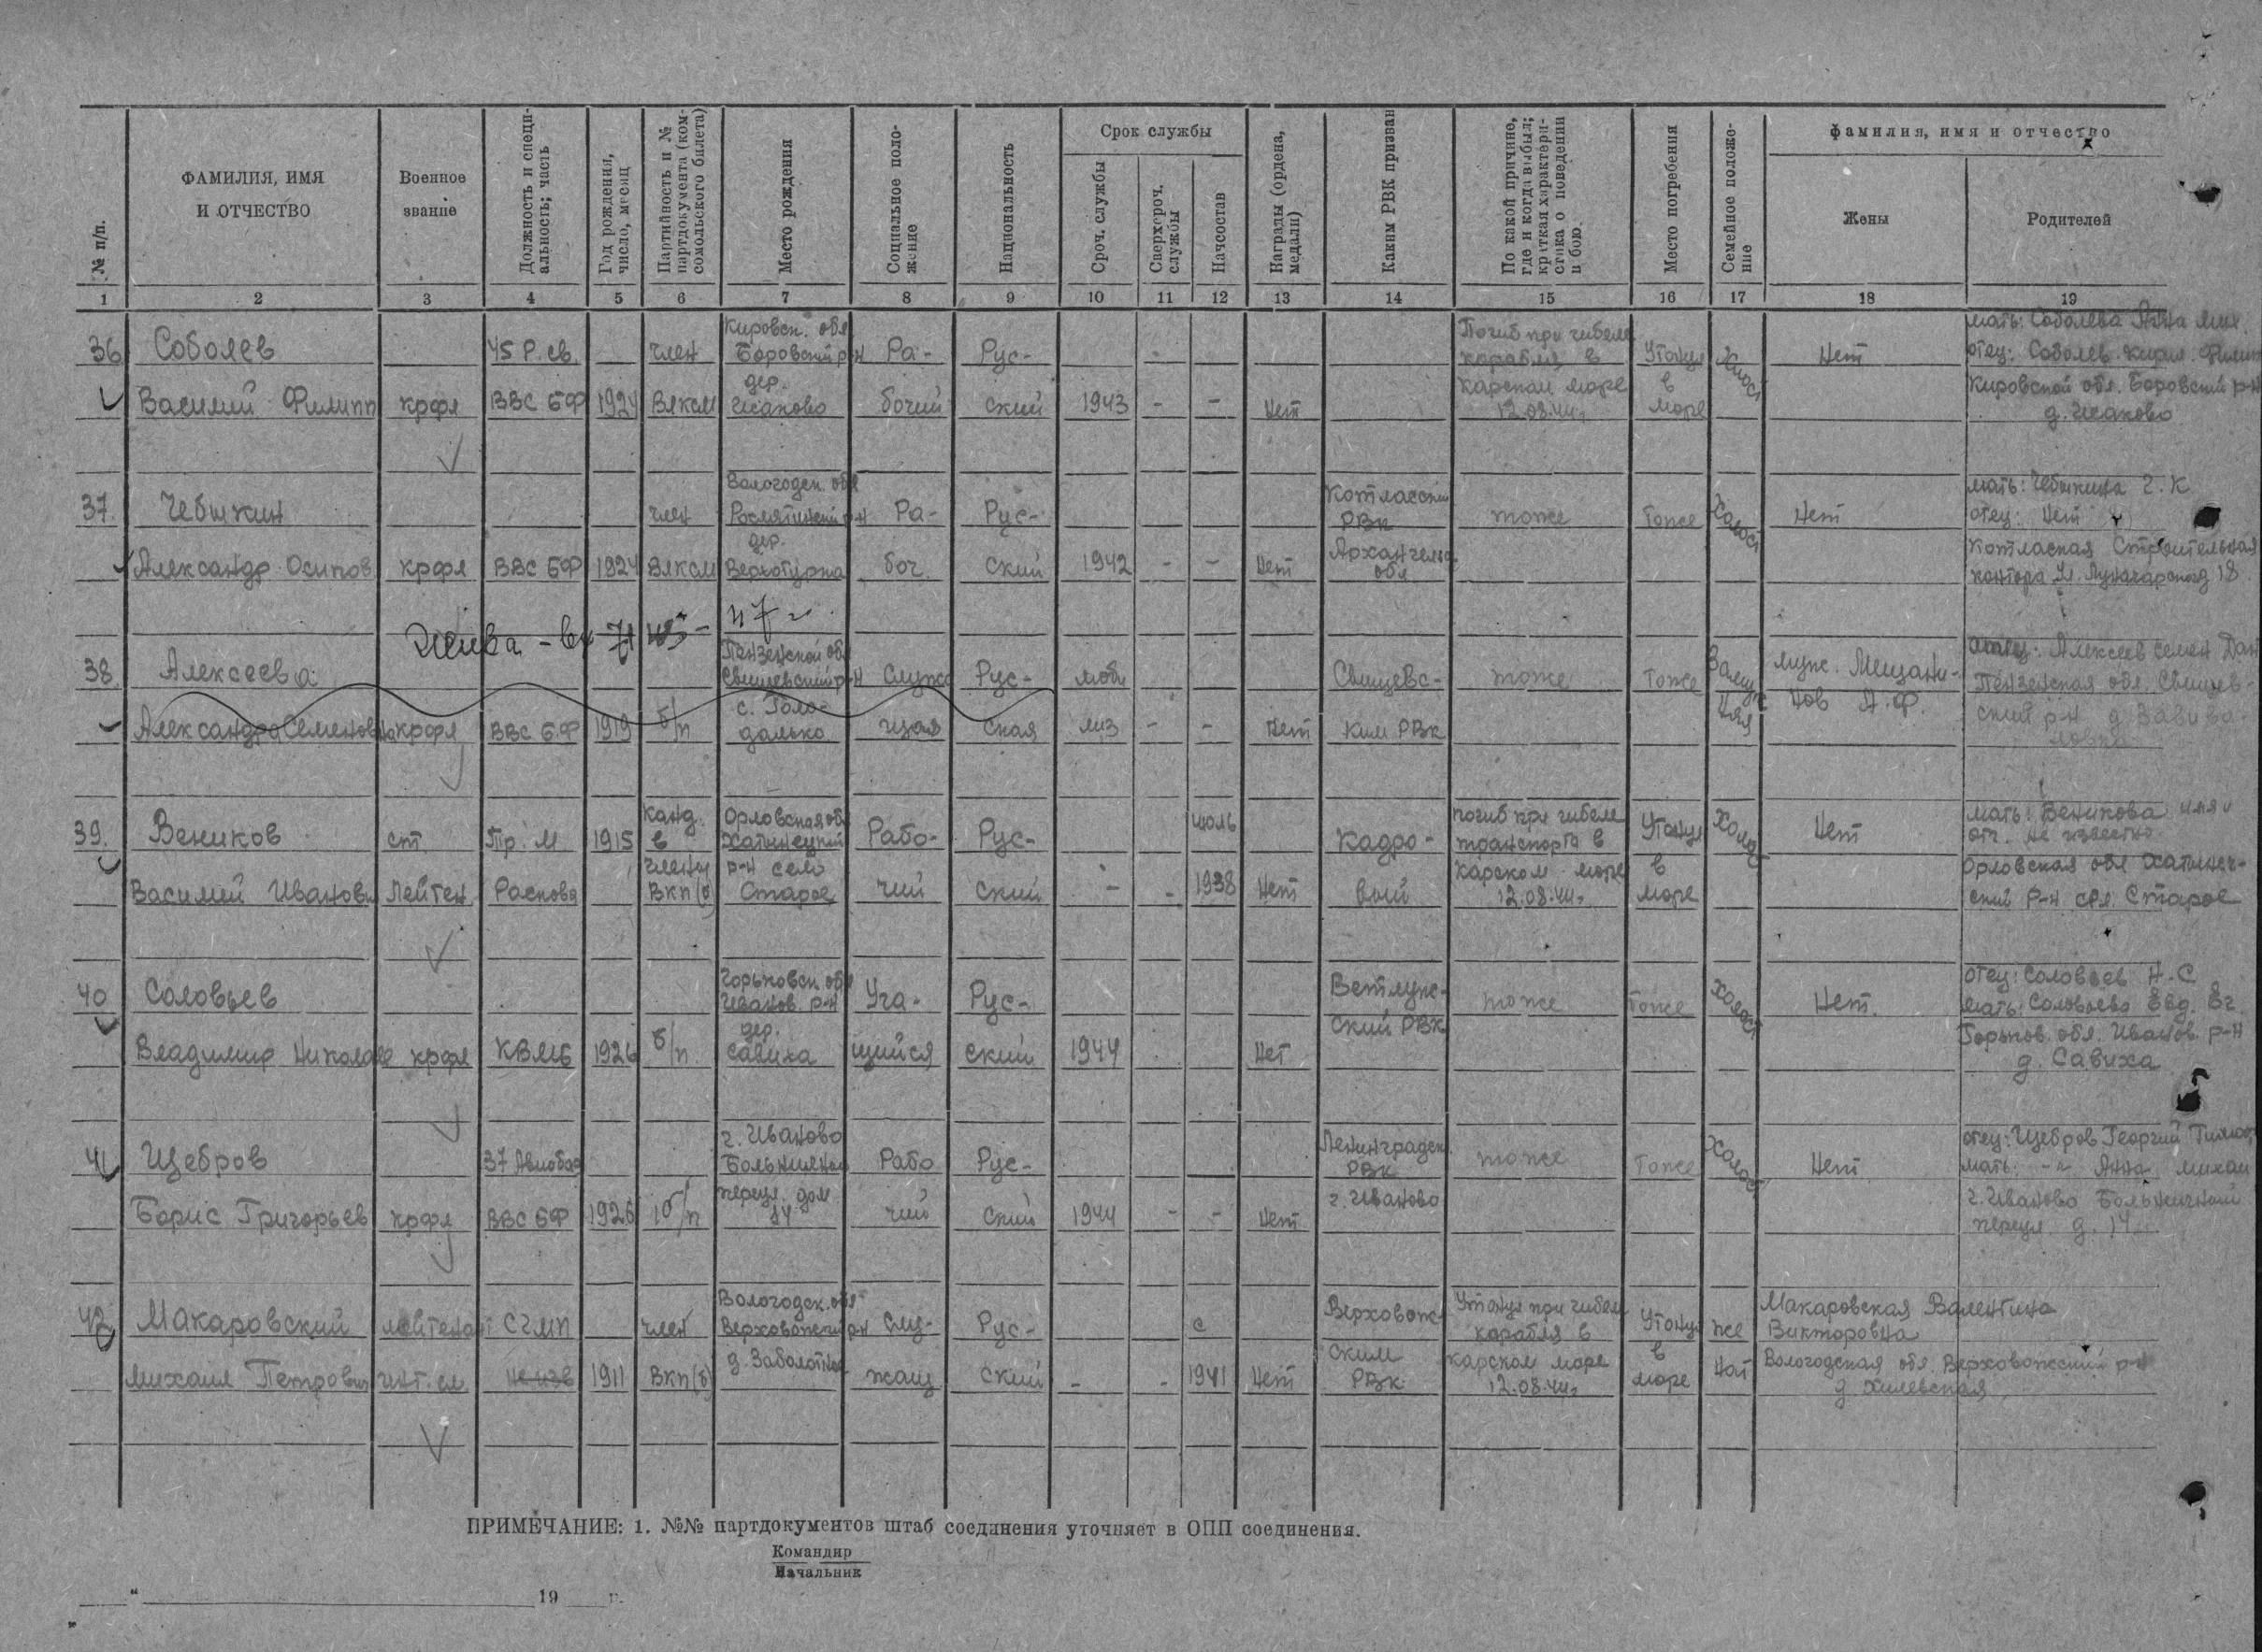 № п/п.
ФАМИЛИЯ, ИМЯ
И ОТЧЕСТВО
Военное
звание
Должность и специ-
альность; часть
Год рождения,
число, месяц
Партийность и №
партдокумента (ком-
сомольского билета)
Место рождения
Социальное поло-
жение
Национальность
Срок службы
Сроч. службы
Сверхсроч.
службы
Начсостав
Награды (ордена,
медали)
Каким РВК призван
По какой причине,
где и когда выбыл;
краткая характери-
стика о поведении
в бою.
Место погребения
Семейное положе-
ние
фамилия, имя и отчество
Жены
Родителей
1 2 3 4 5 6 7 8 9 10 11 12 13 14 15 16 17 18 19
36 Соболев 45 Р. св. член Кировск. обл Боровский р-н Ра- Рус- - Погиб при гибели корабля в Утонул Холост Нет мать: Соболева Анна Мих. отец: Соболев Филип
Василий Филипп крфл ВВС БФ 1924 Влксм дер. Исаково бочий ский 1943 - - Нет Карском море 12.08.44г в море Кировской обл. Боровский р-н д. Исаково
37. Чебыкин член Вологодск. обл Рослятинский р-н Ра- Рус- Котласский РВК тоже Тоже Холост Нет мать: Чебыкина Г. К отец: Нет
Александр Осипов крфл ВВС БФ 1924 Влксм дер. боч. ский 1942 - - Нет Архангельс. обл Котлаская Строительная контора Ул. Луначарского 18
Жива - вх 71
47г.
38. Алексеева Пензенской обл Свищевский р-н Служа Рус- моби Свищевс- тоже Тоже Замуж муж. Мещани- отец: Алексеев Семен Дан
Александра Семеновна крфл ВВС БФ 1919 б/п с. Голо- щая ская лиз - - Нет ким РВК няя нов А. Ф. Пензенская обл. Свищев- ский р-н д
39. Веников ст. Пр. М 1915 Канд. в Орловская обл Хатынецкий Рабо- Рус- июль Кадро- погиб при гибели транспорта в Утонул Холост Нет мать: Веникова имя и от. не известно
Василий Иванови Лейтен Раскова члены Вкп(б) р-н село Старое чий ский - - 1938 Нет вый Карском море 12.08.44г в море Орловская обл Хатынец- ский р-н сел. Старое
40 Соловьев Горьковск. обл Иванов. р-н Уча- Рус- Ветлуж- тоже Тоже Холост Нет. отец: Соловьев Н. С мать: Соловьева Евд. Ег.
Владимир Николаев крфл КВМБ 1926 б/п. дер. Савиха щийся ский 1944 Нет ский РВК Горьков. обл. Иванов. р-н д. Савиха
41 Щебров 37 Авиабаз г. Иваново Больничной Рабо Рус- Ленинградск. РВК тоже Тоже Холост Нет отец: Щебров Георгий мать: -"- Анна Михаи
Борис Григорьев крфл ВВС БФ 1926 б/п переул. дом 14 чий ский 1944 - - Нет г. Иваново г. Иваново Больничный переул д. 14
42 Макаровский лейтенант член Вологодск. обл Верховожский р-н Слу- Рус- с Верховож- Утонул при гибели корабля в Утонул же Макаровская Валентина Викторовна
Михаил Петрович инт. сл. не изв 1911 Вкп(б) д. Заболотная жащ ский - - 1941 Нет ским РВК Карском море 12.08.44г в море нат Вологодская обл. Верховожский р-н д. Хилевская
ПРИМЕЧАНИЕ: 1. №№ партдокументов штаб соединения уточняет в ОПП соединения.
Командир
Начальник
" " 19 г.